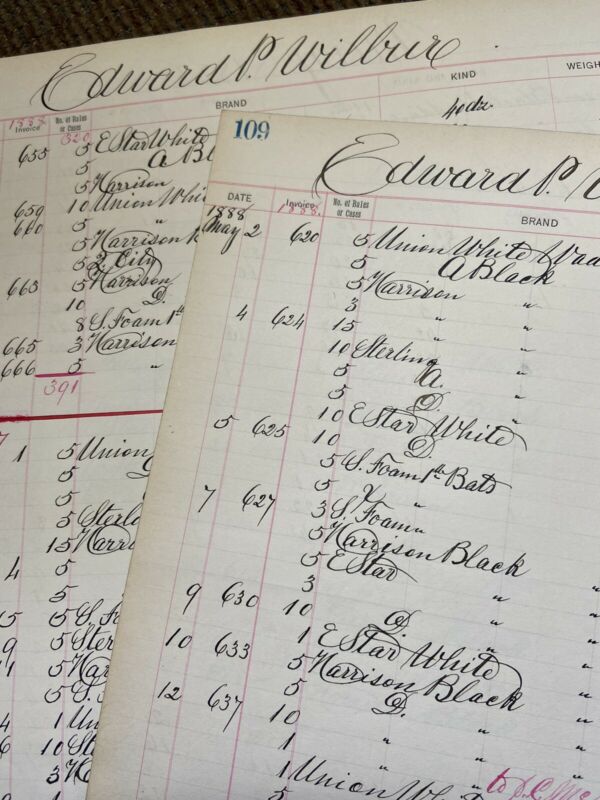 Edward P. Wilbur
BRAND
KIND
WEIGH
1888
Invoice
No. of Bales
or Cases
40 dz
320
655 5 E Star White
5 A Bl
5 Harrison
659 10 Union Whi
660 5 "
5 Harrison
5 2 City
663 5 Harrison
10 D.
8 S. Foam 1st
665 3 Harrison
666 5 "
391
1 5 Union
5
5
5 Sterl
15 Harr
4 5
5
5 5 S. F
9 5 Ster
5 Har
5 S.
4 1 Un
6 10 St
3 H
109
Edward P. W
DATE
Invoice
No. of Bales
or Cases
BRAND
1888 1888.
May 2 620 5 Union White Wad
5 A Black
5 Harrison "
3 " "
4 624 15 " "
10 Sterling "
5 A. "
5 D. "
5 625 10 E Star White
10 D "
5 S. Foam 1st Bats
5 2 "
7 627 3 S Foam "
5 Harrison Black
5 E Star "
3 "
9 630 10 D. "
10 633 1 E Star White
5 Harrison Black
12 637 5 D. "
10 " "
1 " "
1 Union White
5 to S.C. Mc